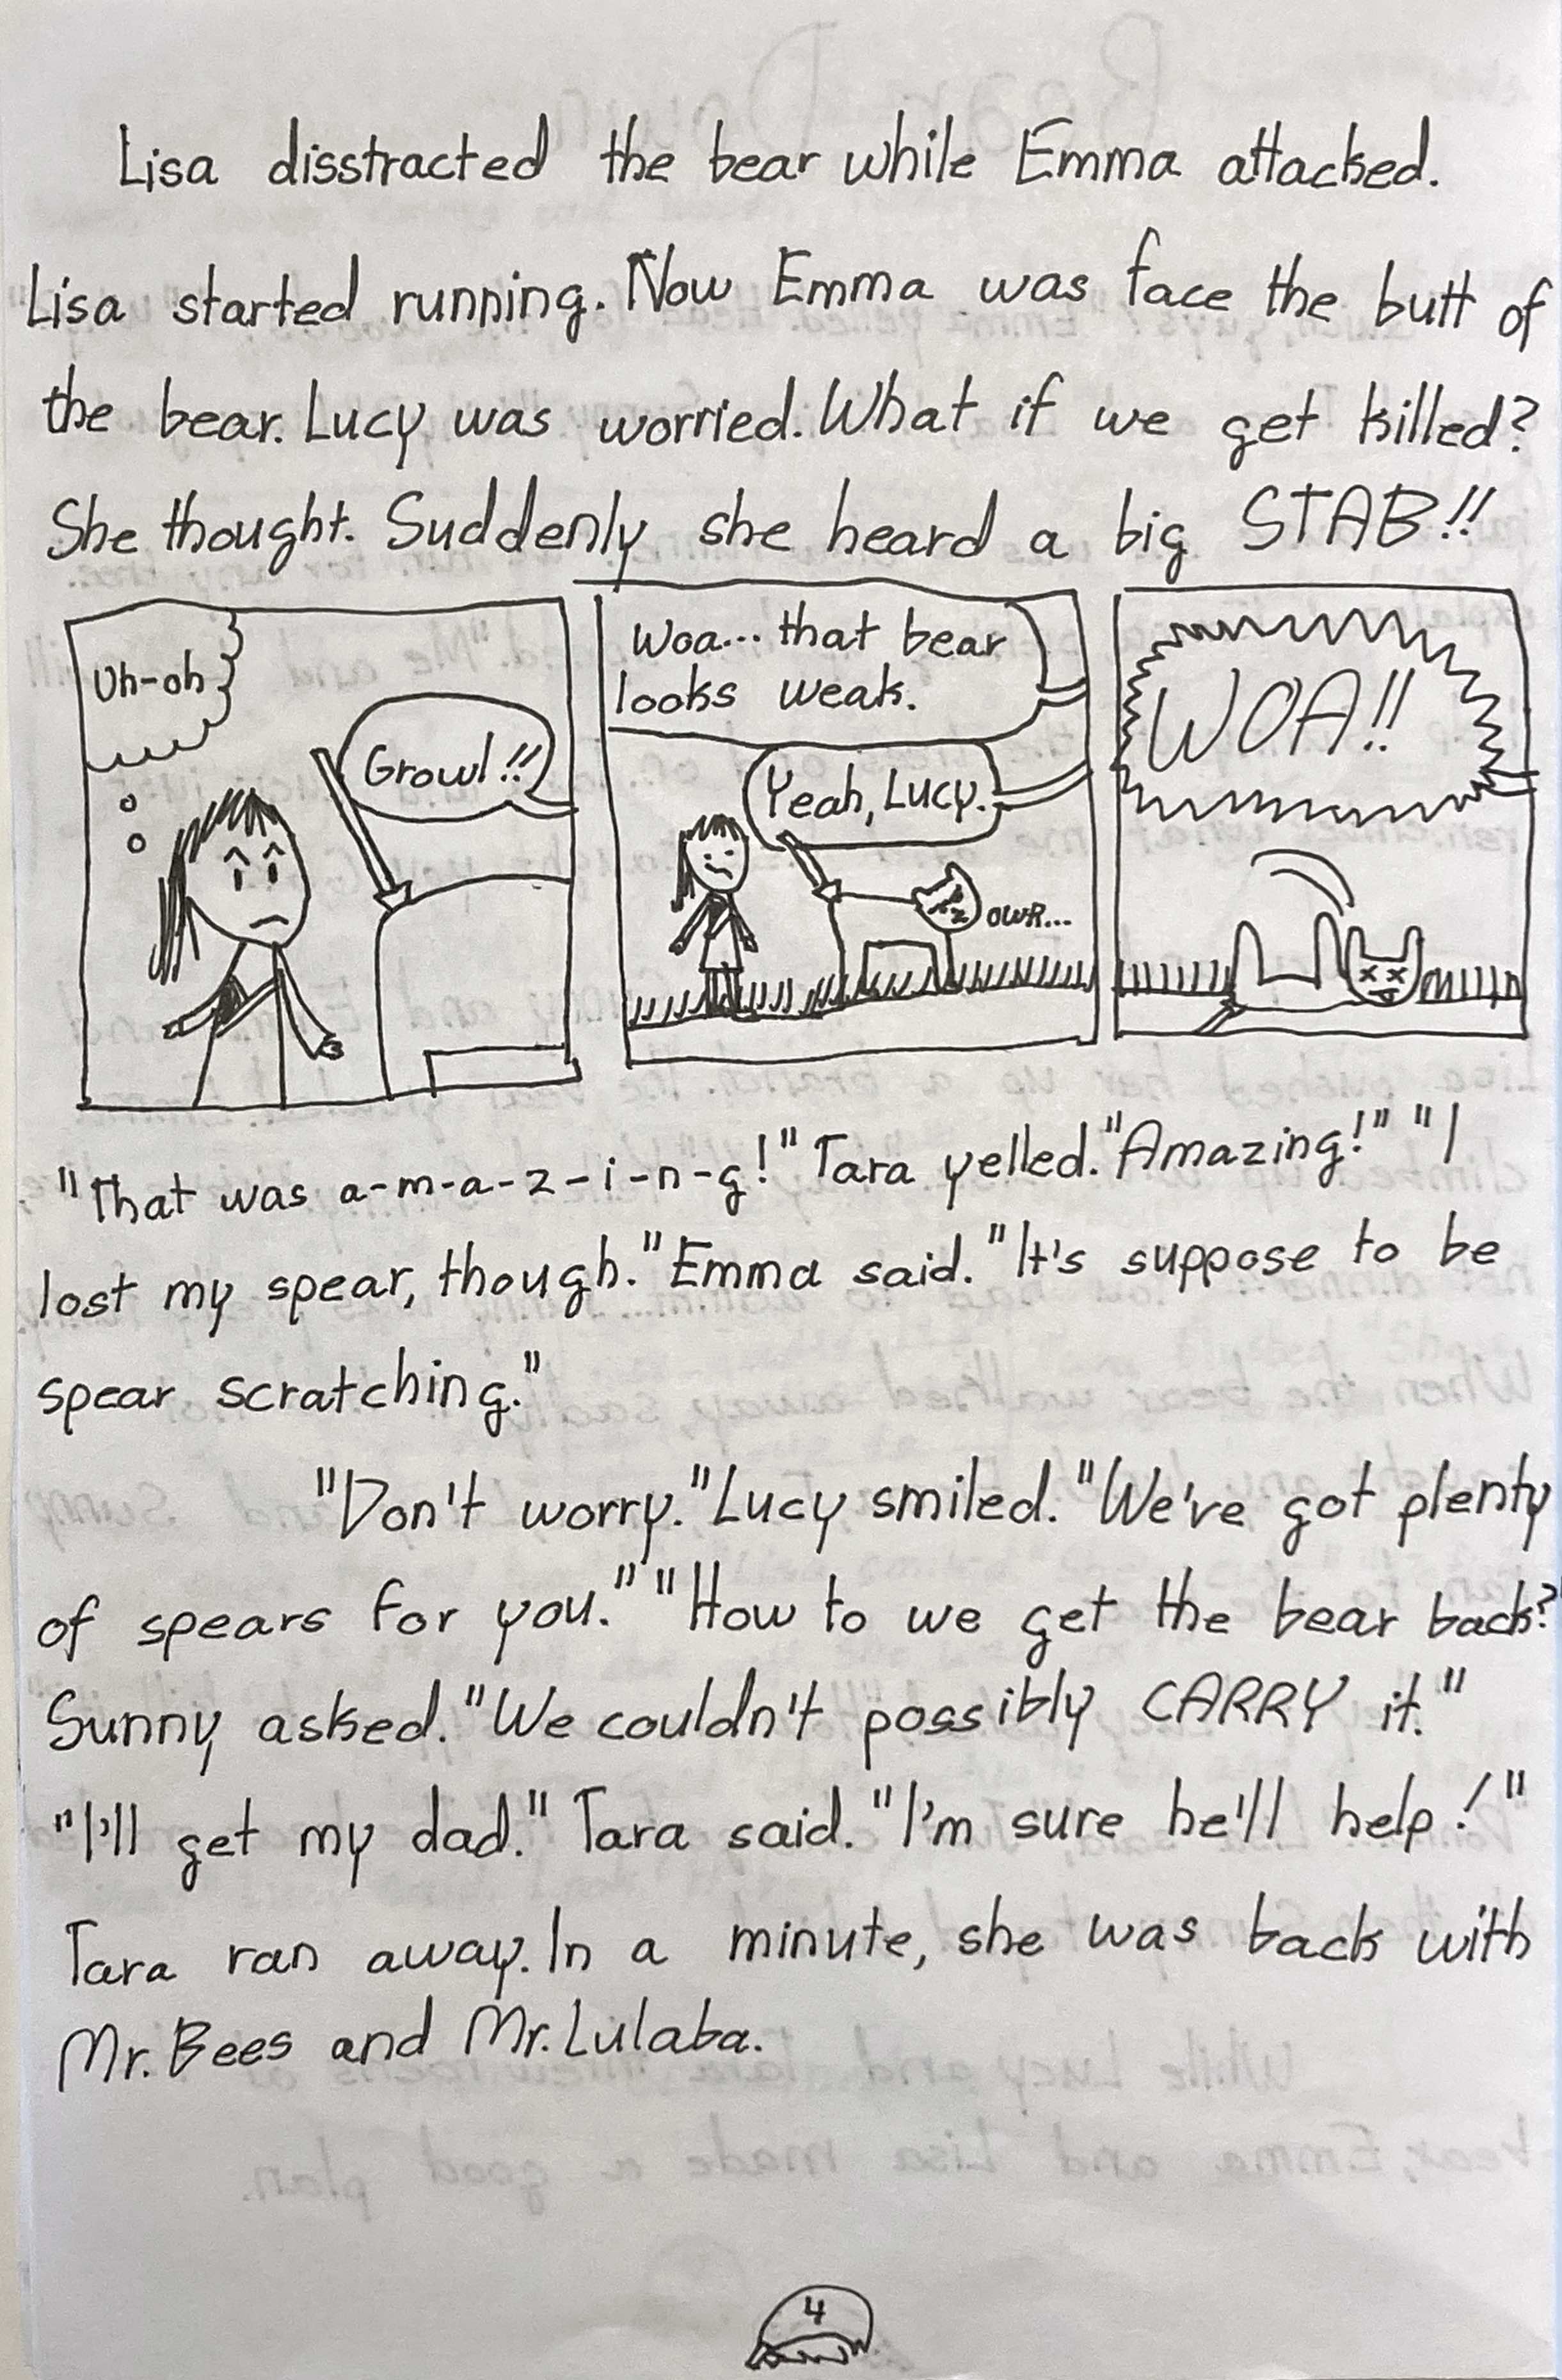 Lisa disstracted the bear while Emma attacked.
Lisa started running. Now Emma was face the butt of
the bear. Lucy was worried. What if we get killed?
She thought. Suddenly she heard a big STAB!!
Uh-oh
Growl!!
Woa... that bear
looks weak.
Yeah, Lucy.
OWR...
WOA!!
"That was a-m-a-z-i-n-g!" Tara yelled. "Amazing!" "I
lost my spear, though." Emma said. "It's suppose to be
spear scratching."
"Don't worry." Lucy smiled. "We've got plenty
of spears for you." "How to we get the bear back?"
Sunny asked. "We couldn't possibly CARRY it."
"I'll get my dad." Tara said. "I'm sure he'll help!"
Tara ran away. In a minute, she was back with
Mr. Bees and Mr. Lulaba.
4